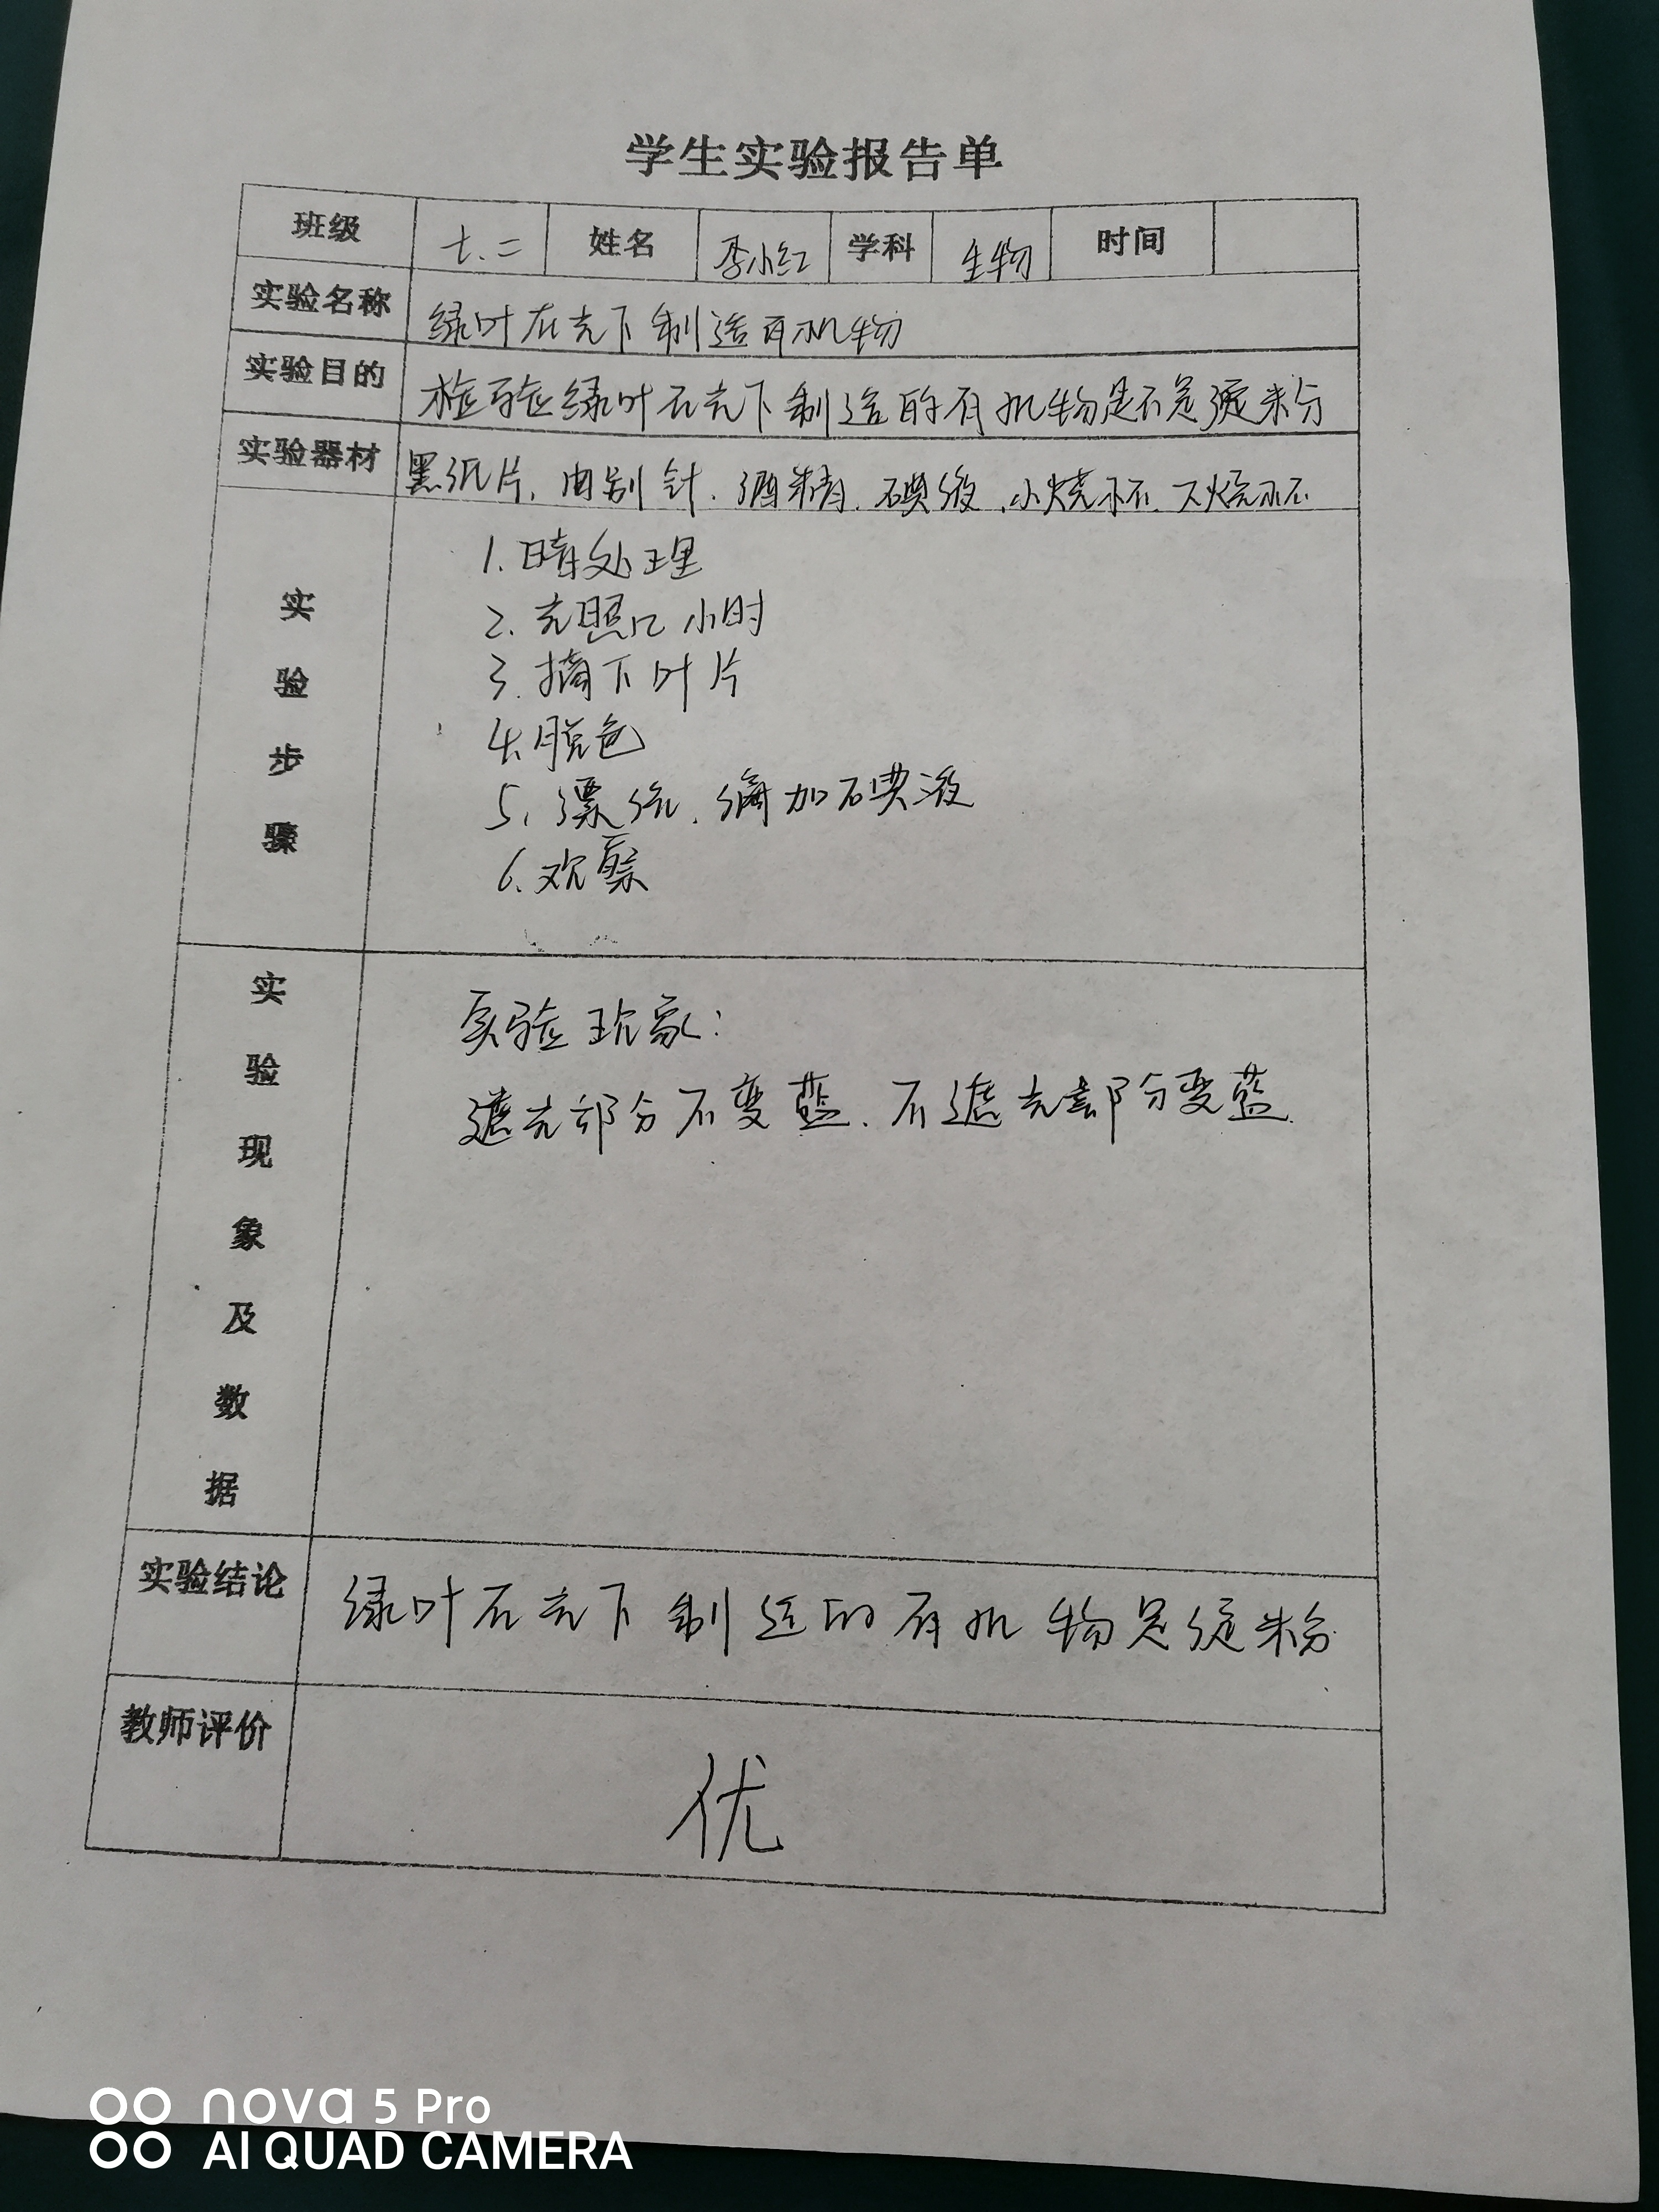 学生实验报告单
班级 七.二 姓名 李小红 学科 生物 时间
实验名称 绿叶在光下制造有机物
实验目的 检验绿叶在光下制造的有机物是不是淀粉
实验器材 黑纸片、曲别针、酒精、碘液、小烧杯、大烧杯
实验步骤
1.暗处理
2.光照几小时
3.摘下叶片
4.脱色
5.漂洗、滴加碘液
6.观察
实验现象及数据
实验现象:
遮光部分不变蓝、不遮光部分变蓝
实验结论 绿叶在光下制造的有机物是淀粉
教师评价 优
nova 5 Pro
AI QUAD CAMERA